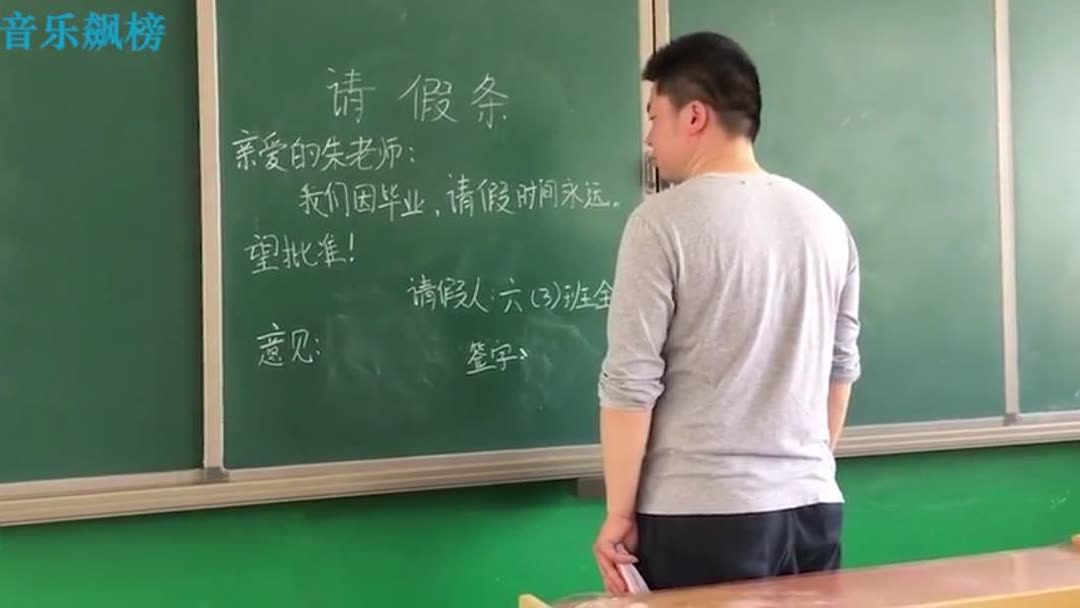 音乐飙榜
请假条
亲爱的朱老师：
我们因毕业，请假时间永远。
望批准！
请假人：六（3）班全
意见：
签字：